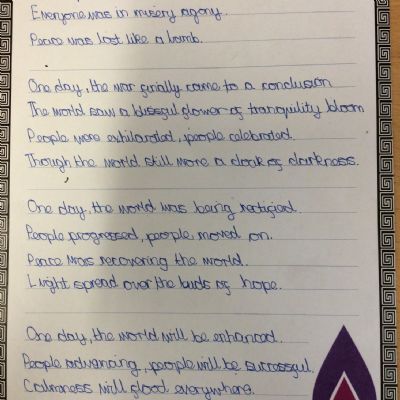 Everyone was in misery agony.
Peace was lost like a lamb.
One day, the war finally came to a conclusion
The world saw a blissful flower of tranquility bloom
People were exhilarated, people celebrated.
Though the world still wore a cloak of darkness.
One day, the world was being rectified.
People progressed, people moved on.
Peace was recovering the world.
Light spread over the buds of hope.
One day, the world will be enhanced.
People advancing, people will be successful.
Calmness will flood everywhere.